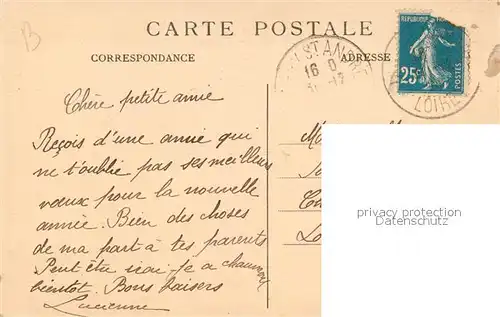 B
CARTE POSTALE
CORRESPONDANCE
ADRESSE
ST ANDRÉ
16
LOIRE
REPUBLIQUE
25c
POSTES
Chère petite amie
Reçois d'une amie qui
ne t'oublie pas ses meilleurs
vœux pour la nouvelle
année. Bien des choses
de ma part à tes parents
Peut être irai-je a
bientôt. Bons baisers
Lucienne
privacy protection
Datenschutz